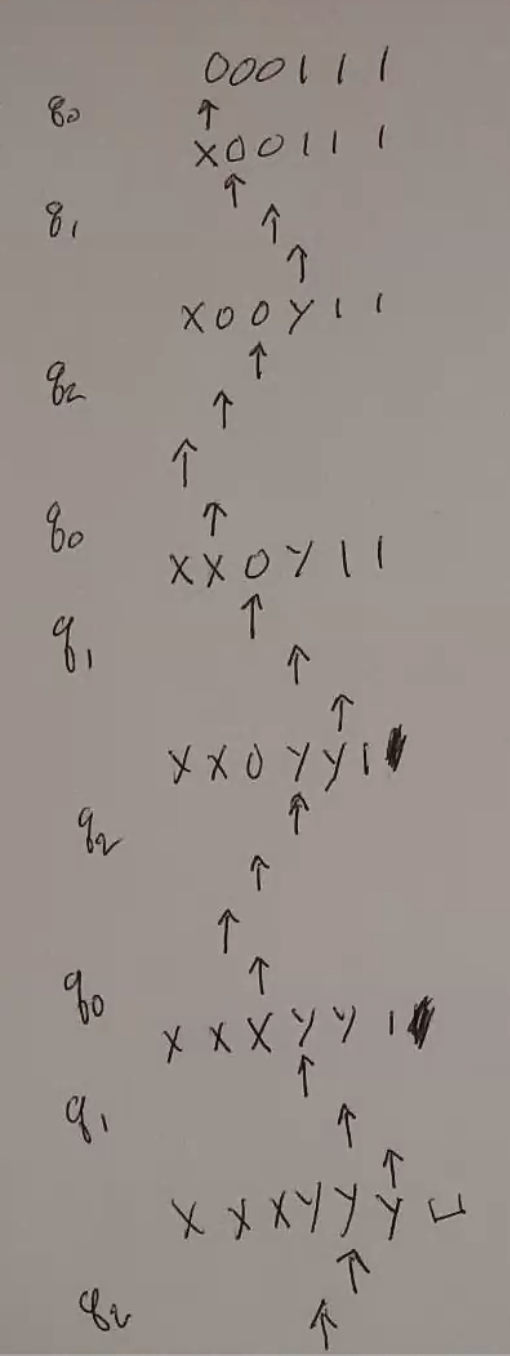 000111
q0 ↑
X00111
↑
q1 ↑
↑
X00Y11
↑
q2 ↑
↑
q0 ↑
XX0Y11
↑
q1 ↑
↑
XX0YY1
↑
q2 ↑
↑
q0 ↑
XXXYY1
↑
q1 ↑
↑
XXXYYY⊔
↑
q2 ↑